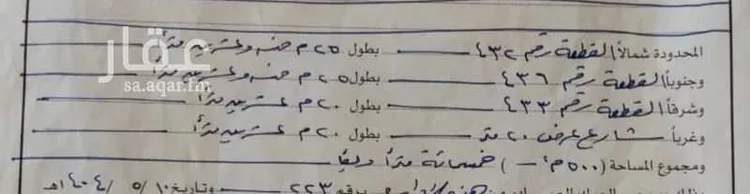 المحدودة شمالاً القطعة رقم ٤٣٢ بطول ٢٥ م خمسه وعشرين متراً
وجنوباً القطعة رقم ٤٣٦ بطول ٢٥ م خمسه وعشرين متراً
وشرقاً القطعة رقم ٤٣٣ بطول ٢٠ م عشرين متراً
وغرباً شارع عرض ٢٠ متر بطول ٢٠ م عشرين متراً
ومجموع المساحة (٥٠٠ م٢) خمسمائة متراً
برقم ٢٢٣ وتاريخ ١٠ / ٥ / ١٤٠٤هـ
عقار
sa.aqar.fm